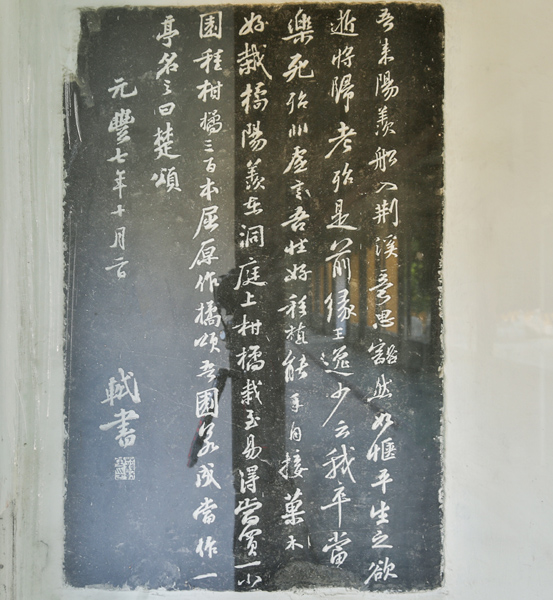 吾来陽羨船入荆溪意思豁然如愜平生之欲
逝將歸老殆是前緣王逸少云我卒當
樂死殆非虛言吾性好種植能手自接菓木
好栽橘陽羨在洞庭上柑橘栽至易得當買一小
園種柑橘三百本屈原作橘頌吾園若成當作一
亭名之曰楚頌
元豐七年十月二日
軾書